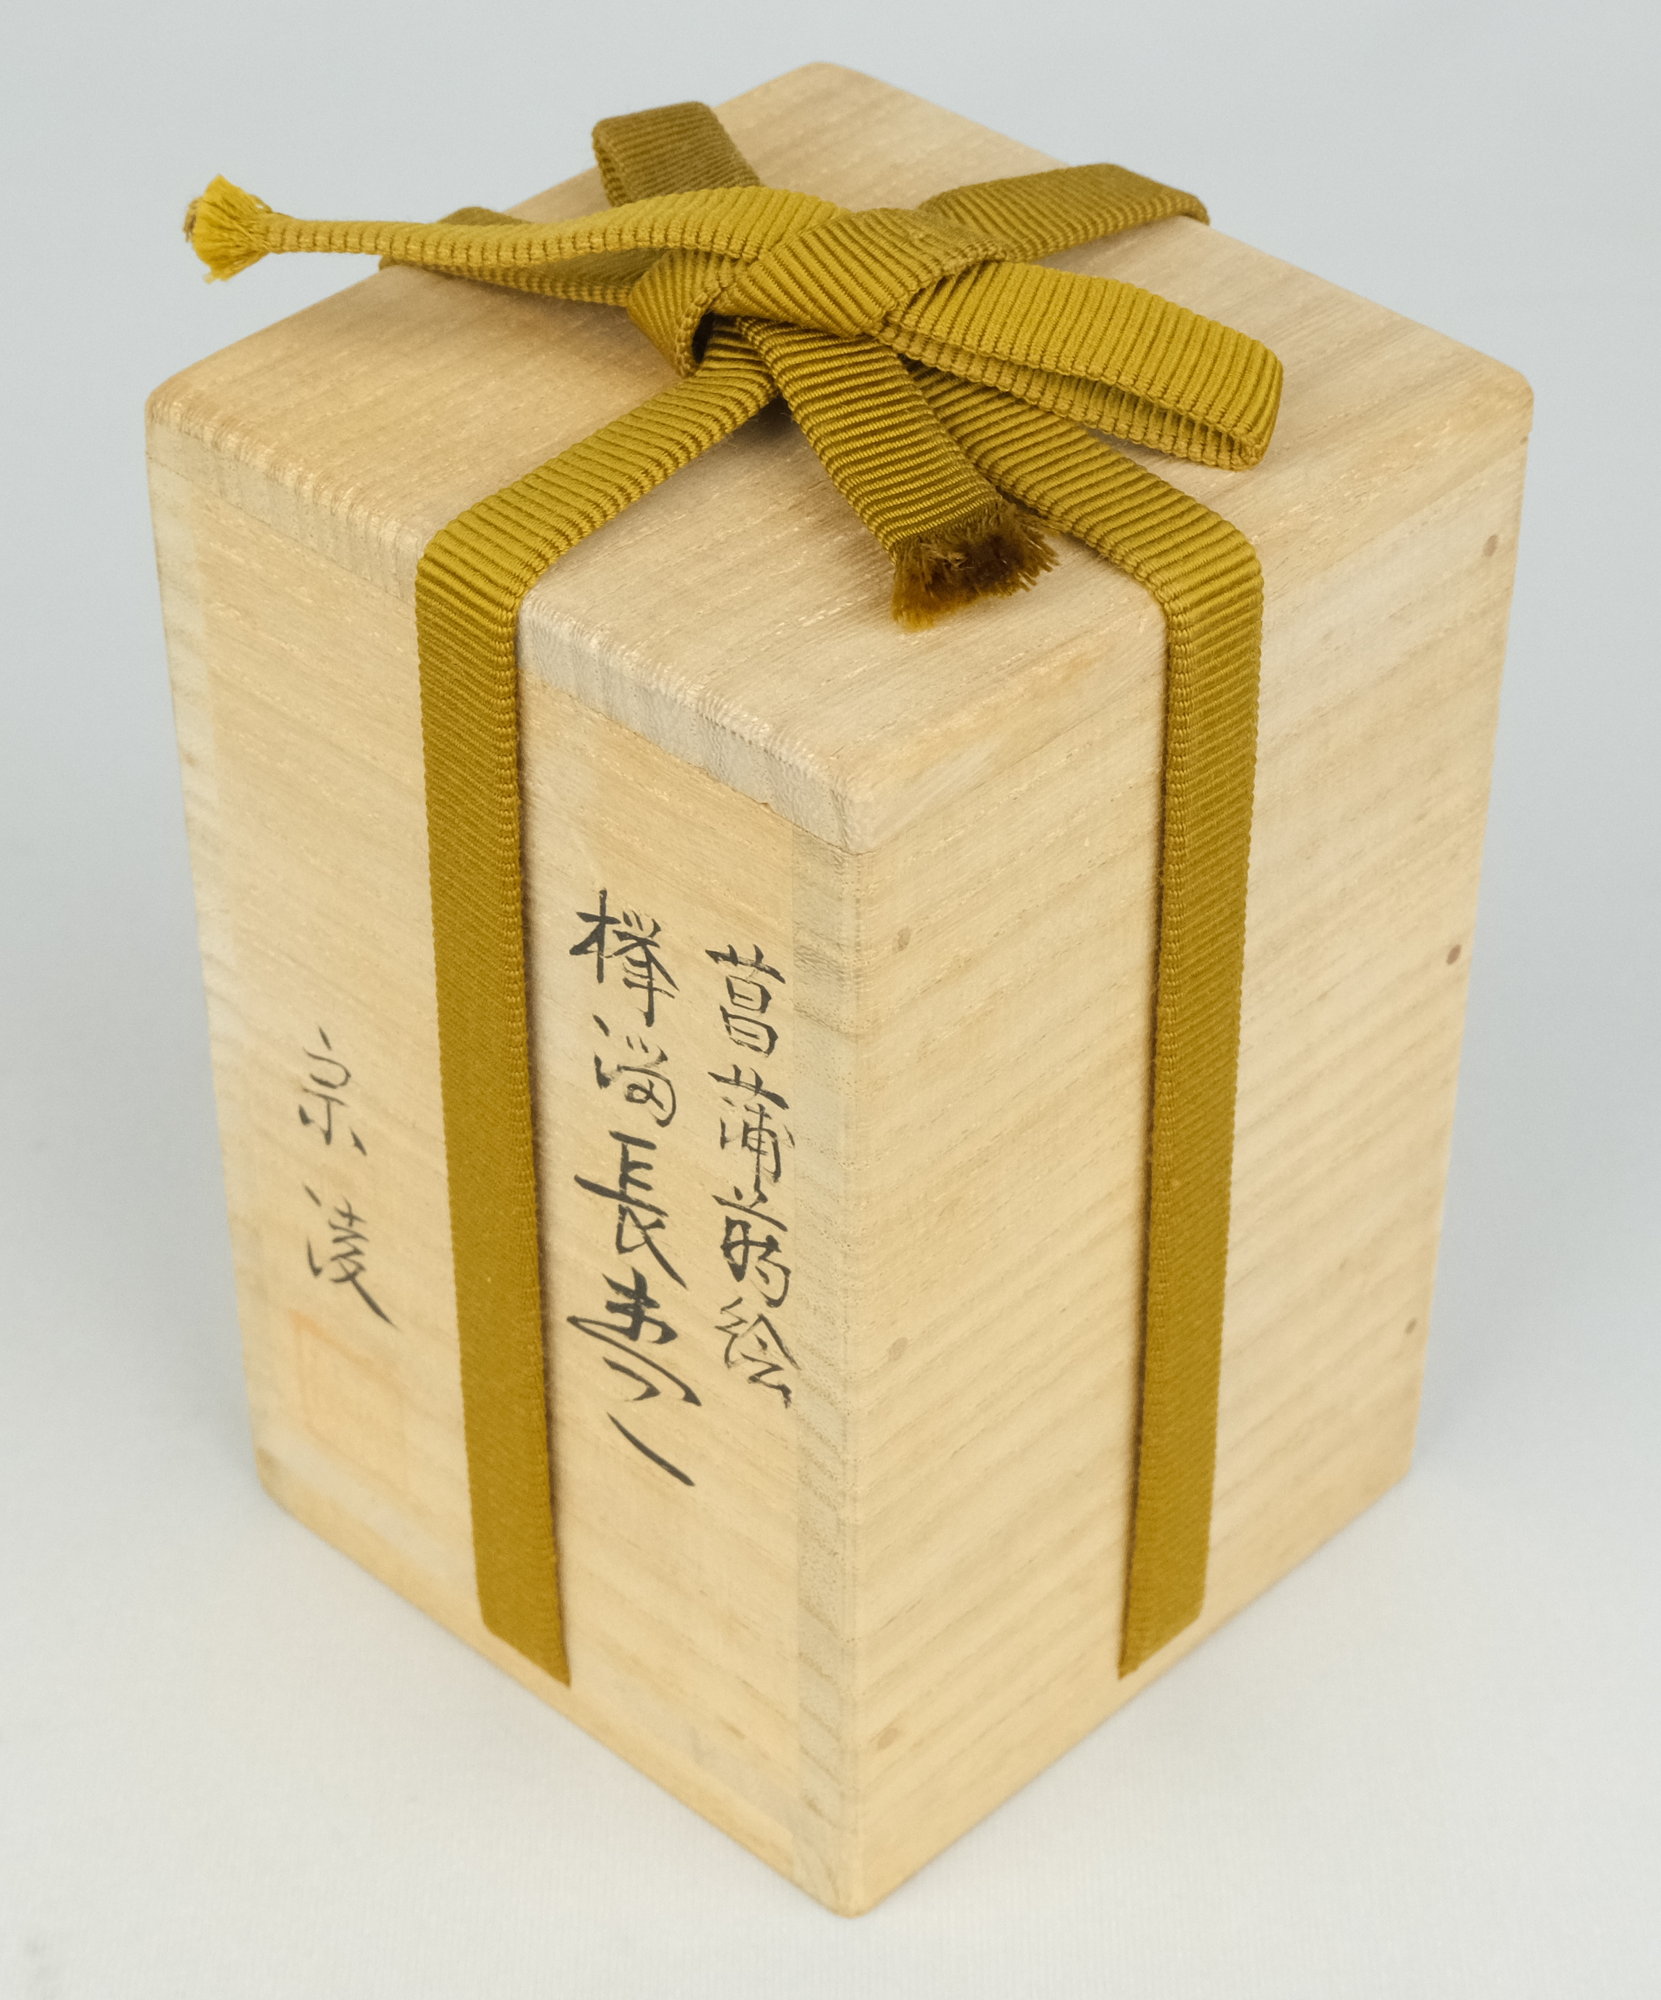 菖蒲蒔絵
欅溜長棗
京凌